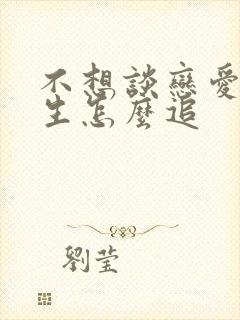 不想談戀愛
生怎麼追
劉瑩